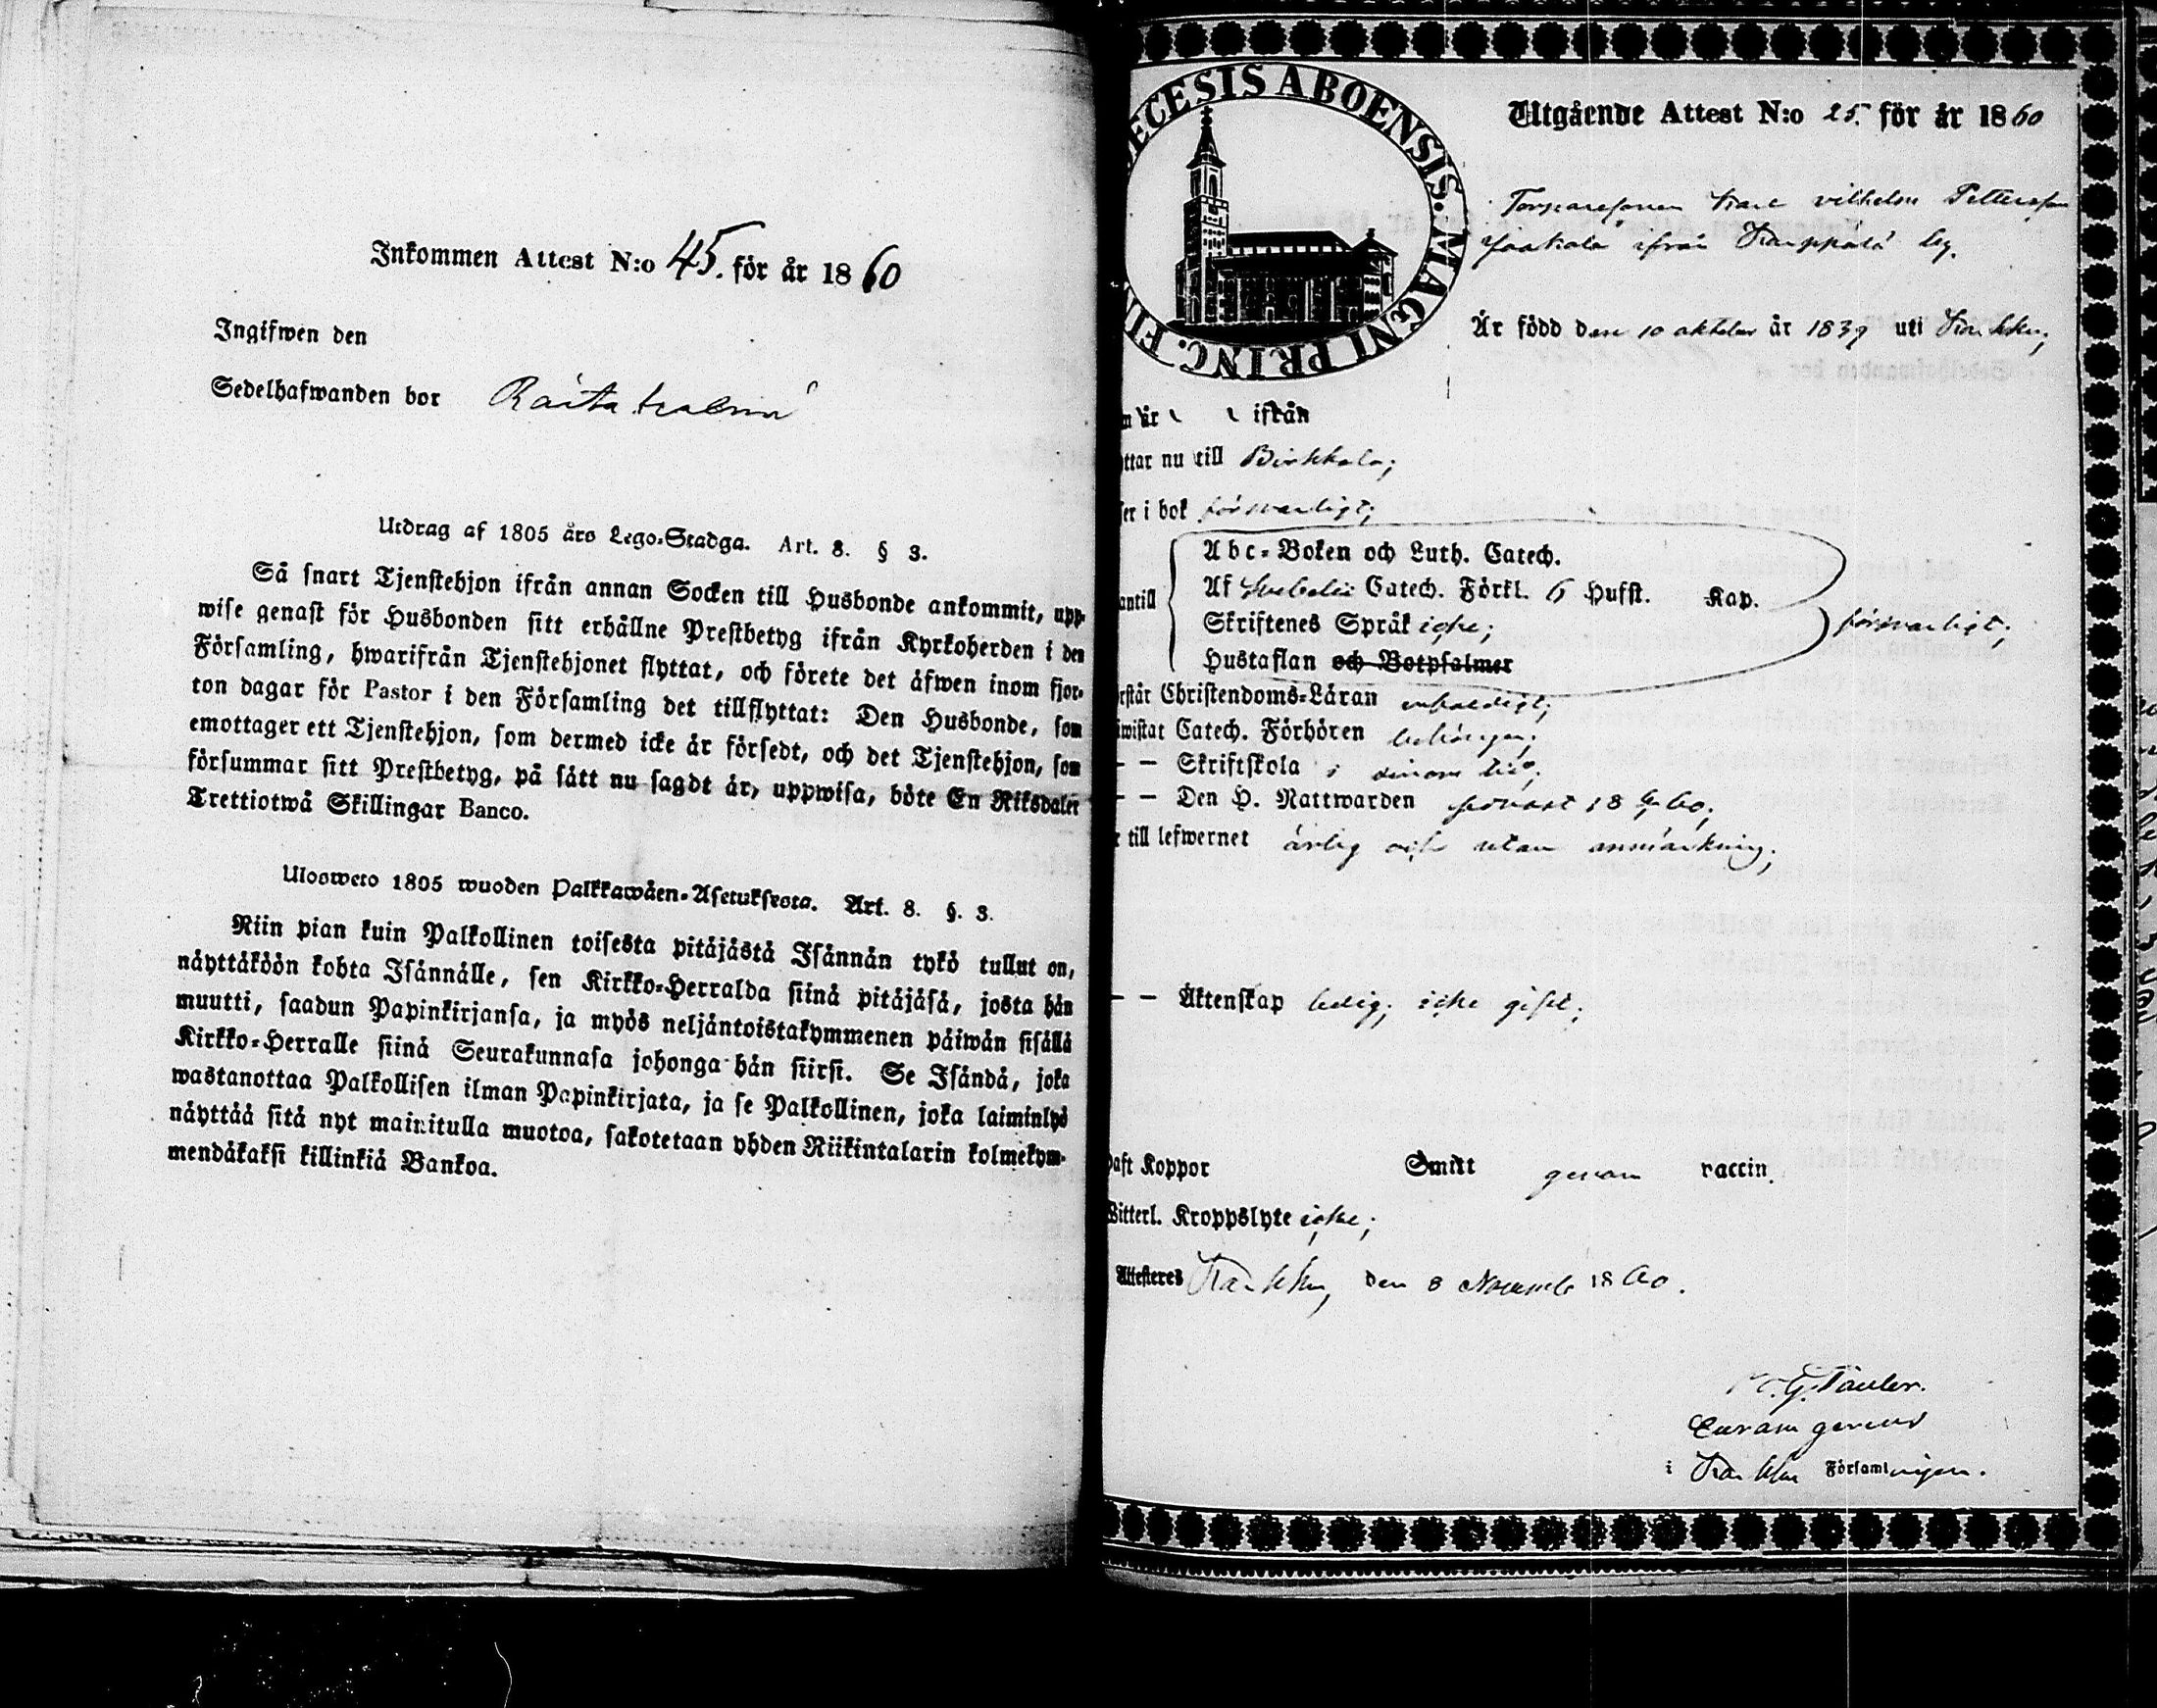 Inkommen Attest N:o 45. för år 1860
Ingifwen den
Sedelhafwanden bor
Utdrag af 1805 års Lego-Stadga. Art. 8. § 3.
Så snart Tjenstehjon ifrån annan Socken till Husbonde ankommit, upp-
wise genast för Husbonden sitt erhållne Prestbetyg ifrån Kyrkoherden i den
Församling, hwarifrån Tjenstehjonet flyttat, och förete det äfwen inom fjor-
ton dagar för Pastor i den Församling det tillflyttat: Den Husbonde, som
emottager ett Tjenstehjon, som dermed icke är försedt, och det Tjenstehjon, som
försummar sitt Prestbetyg, på sätt nu sagdt är, uppwisa, böte En Riksdaler
Trettiotwå Skillingar Banco.
Ulosweto 1805 wuoden Palkkawäen-Asetuksesta. Art. 8. §. 3.
Niin pian kuin Palkollinen toisesta pitäjästä Isännän tykö tullut on,
näyttäköön kohta Isännälle, sen Kirkko-Herralda siinä pitäjäsä, josta hän
muutti, saadun Papinkirjansa, ja myös neljäntoistakymmenen päiwän sisällä
Kirkko-Herralle siinä Seurakunnasa johonga hän siirsi. Se Isändä, joka
wastanottaa Palkollisen ilman Papinkirjata, ja se Palkollinen, joka laiminlyö
näyttää sitä nyt mainitulla muotoa, sakotetaan yhden Riikintalarin kolmekym-
mendäkaksi killinkiä Bankoa.
ECESIS ABOENSIS. MAGNI PRINC. FIN
Utgående Attest N:o 25. för år 1860
Torparesonen Karl vilhelm Pettersson
ifrån by.
Är född den 10 oktober år 1839 uti Karkku;
är ifrån
ttar nu till Birkkala;
ser i bok försvarligt;
Abc-Boken och Luth. Catech.
antill Af Svebelii Catech. Förkl. 6 Hufst. Kap.
Skriftenes Språk icke; försvarligt;
Hustaflan och Botpsalmer
rstår Christendoms-Läran
iwistat Catech. Förhören behörigen;
— — Skriftskola i sinom tid;
— — Den H. Nattwarden 18 60;
e till lefwernet ärlig och utan anmärkning;
— — Äktenskap ledig; icke gift;
Haft Koppor Smitt genom vaccin.
Witterl. Kroppslyte icke;
Attesteres Karkku, den 8 November 1860.
Curam gerens
i Karkku Församlingen.